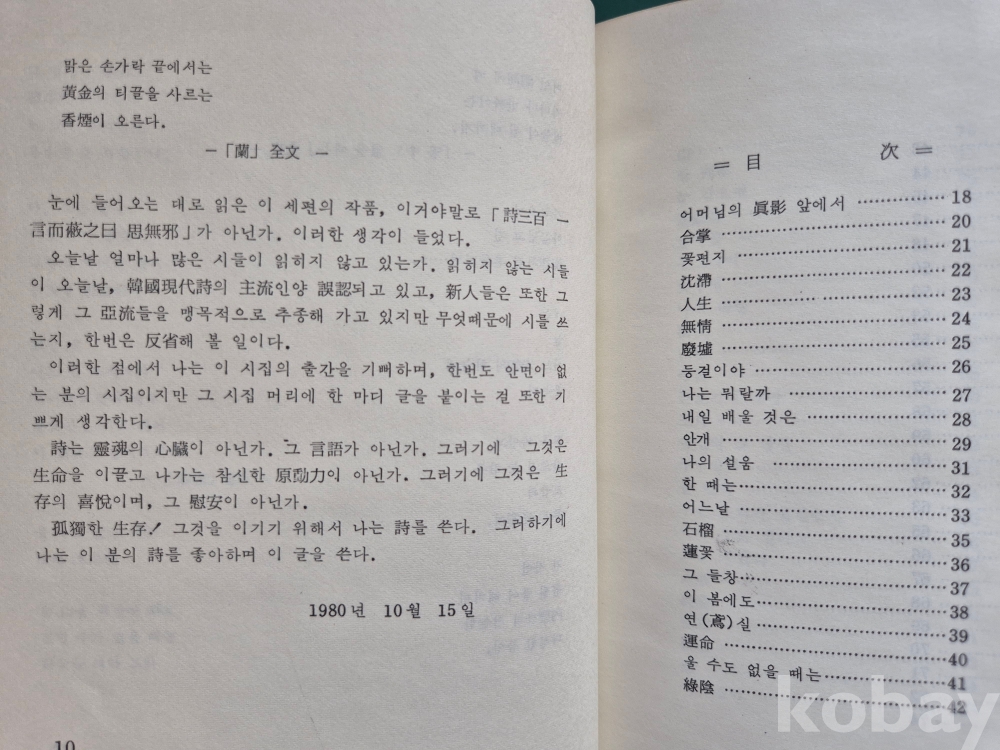 맑은 손가락 끝에서는
黃金의 티끌을 사르는
香煙이 오른다.
—「蘭」全文 —
눈에 들어오는 대로 읽은 이 세편의 작품, 이거야말로「詩三百 一
言而蔽之曰 思無邪」가 아닌가. 이러한 생각이 들었다.
오늘날 얼마나 많은 시들이 읽히지 않고 있는가. 읽히지 않는 시들
이 오늘날, 韓國現代詩의 主流인양 誤認되고 있고, 新人들은 또한 그
렇게 그 亞流들을 맹목적으로 추종해 가고 있지만 무엇때문에 시를 쓰
는지, 한번은 反省해 볼 일이다.
이러한 점에서 나는 이 시집의 출간을 기뻐하며, 한번도 안면이 없
는 분의 시집이지만 그 시집 머리에 한 마디 글을 붙이는 걸 또한 기
쁘게 생각한다.
詩는 靈魂의 心臟이 아닌가. 그 言語가 아닌가. 그러기에 그것은
生命을 이끌고 나가는 참신한 原動力이 아닌가. 그러기에 그것은 生
存의 喜悅이며, 그 慰安이 아닌가.
孤獨한 生存! 그것을 이기기 위해서 나는 詩를 쓴다. 그러하기에
나는 이 분의 詩를 좋아하며 이 글을 쓴다.
1980년 10월 15일
10
= 目 次 =
어머님의 眞影 앞에서 ⋯⋯ 18
合掌 ⋯⋯ 20
꽃편지 ⋯⋯ 21
沈滯 ⋯⋯ 22
人生 ⋯⋯ 23
無情 ⋯⋯ 24
廢墟 ⋯⋯ 25
등걸이야 ⋯⋯ 26
나는 뭐랄까 ⋯⋯ 27
내일 배울 것은 ⋯⋯ 28
안개 ⋯⋯ 29
나의 설움 ⋯⋯ 31
한 때는 ⋯⋯ 32
어느날 ⋯⋯ 33
石榴 ⋯⋯ 35
蓮꽃 ⋯⋯ 36
그 들창 ⋯⋯ 37
이 봄에도 ⋯⋯ 38
연(鳶)실 ⋯⋯ 39
運命 ⋯⋯ 40
울 수도 없을 때는 ⋯⋯ 41
綠陰 ⋯⋯ 42
kobay